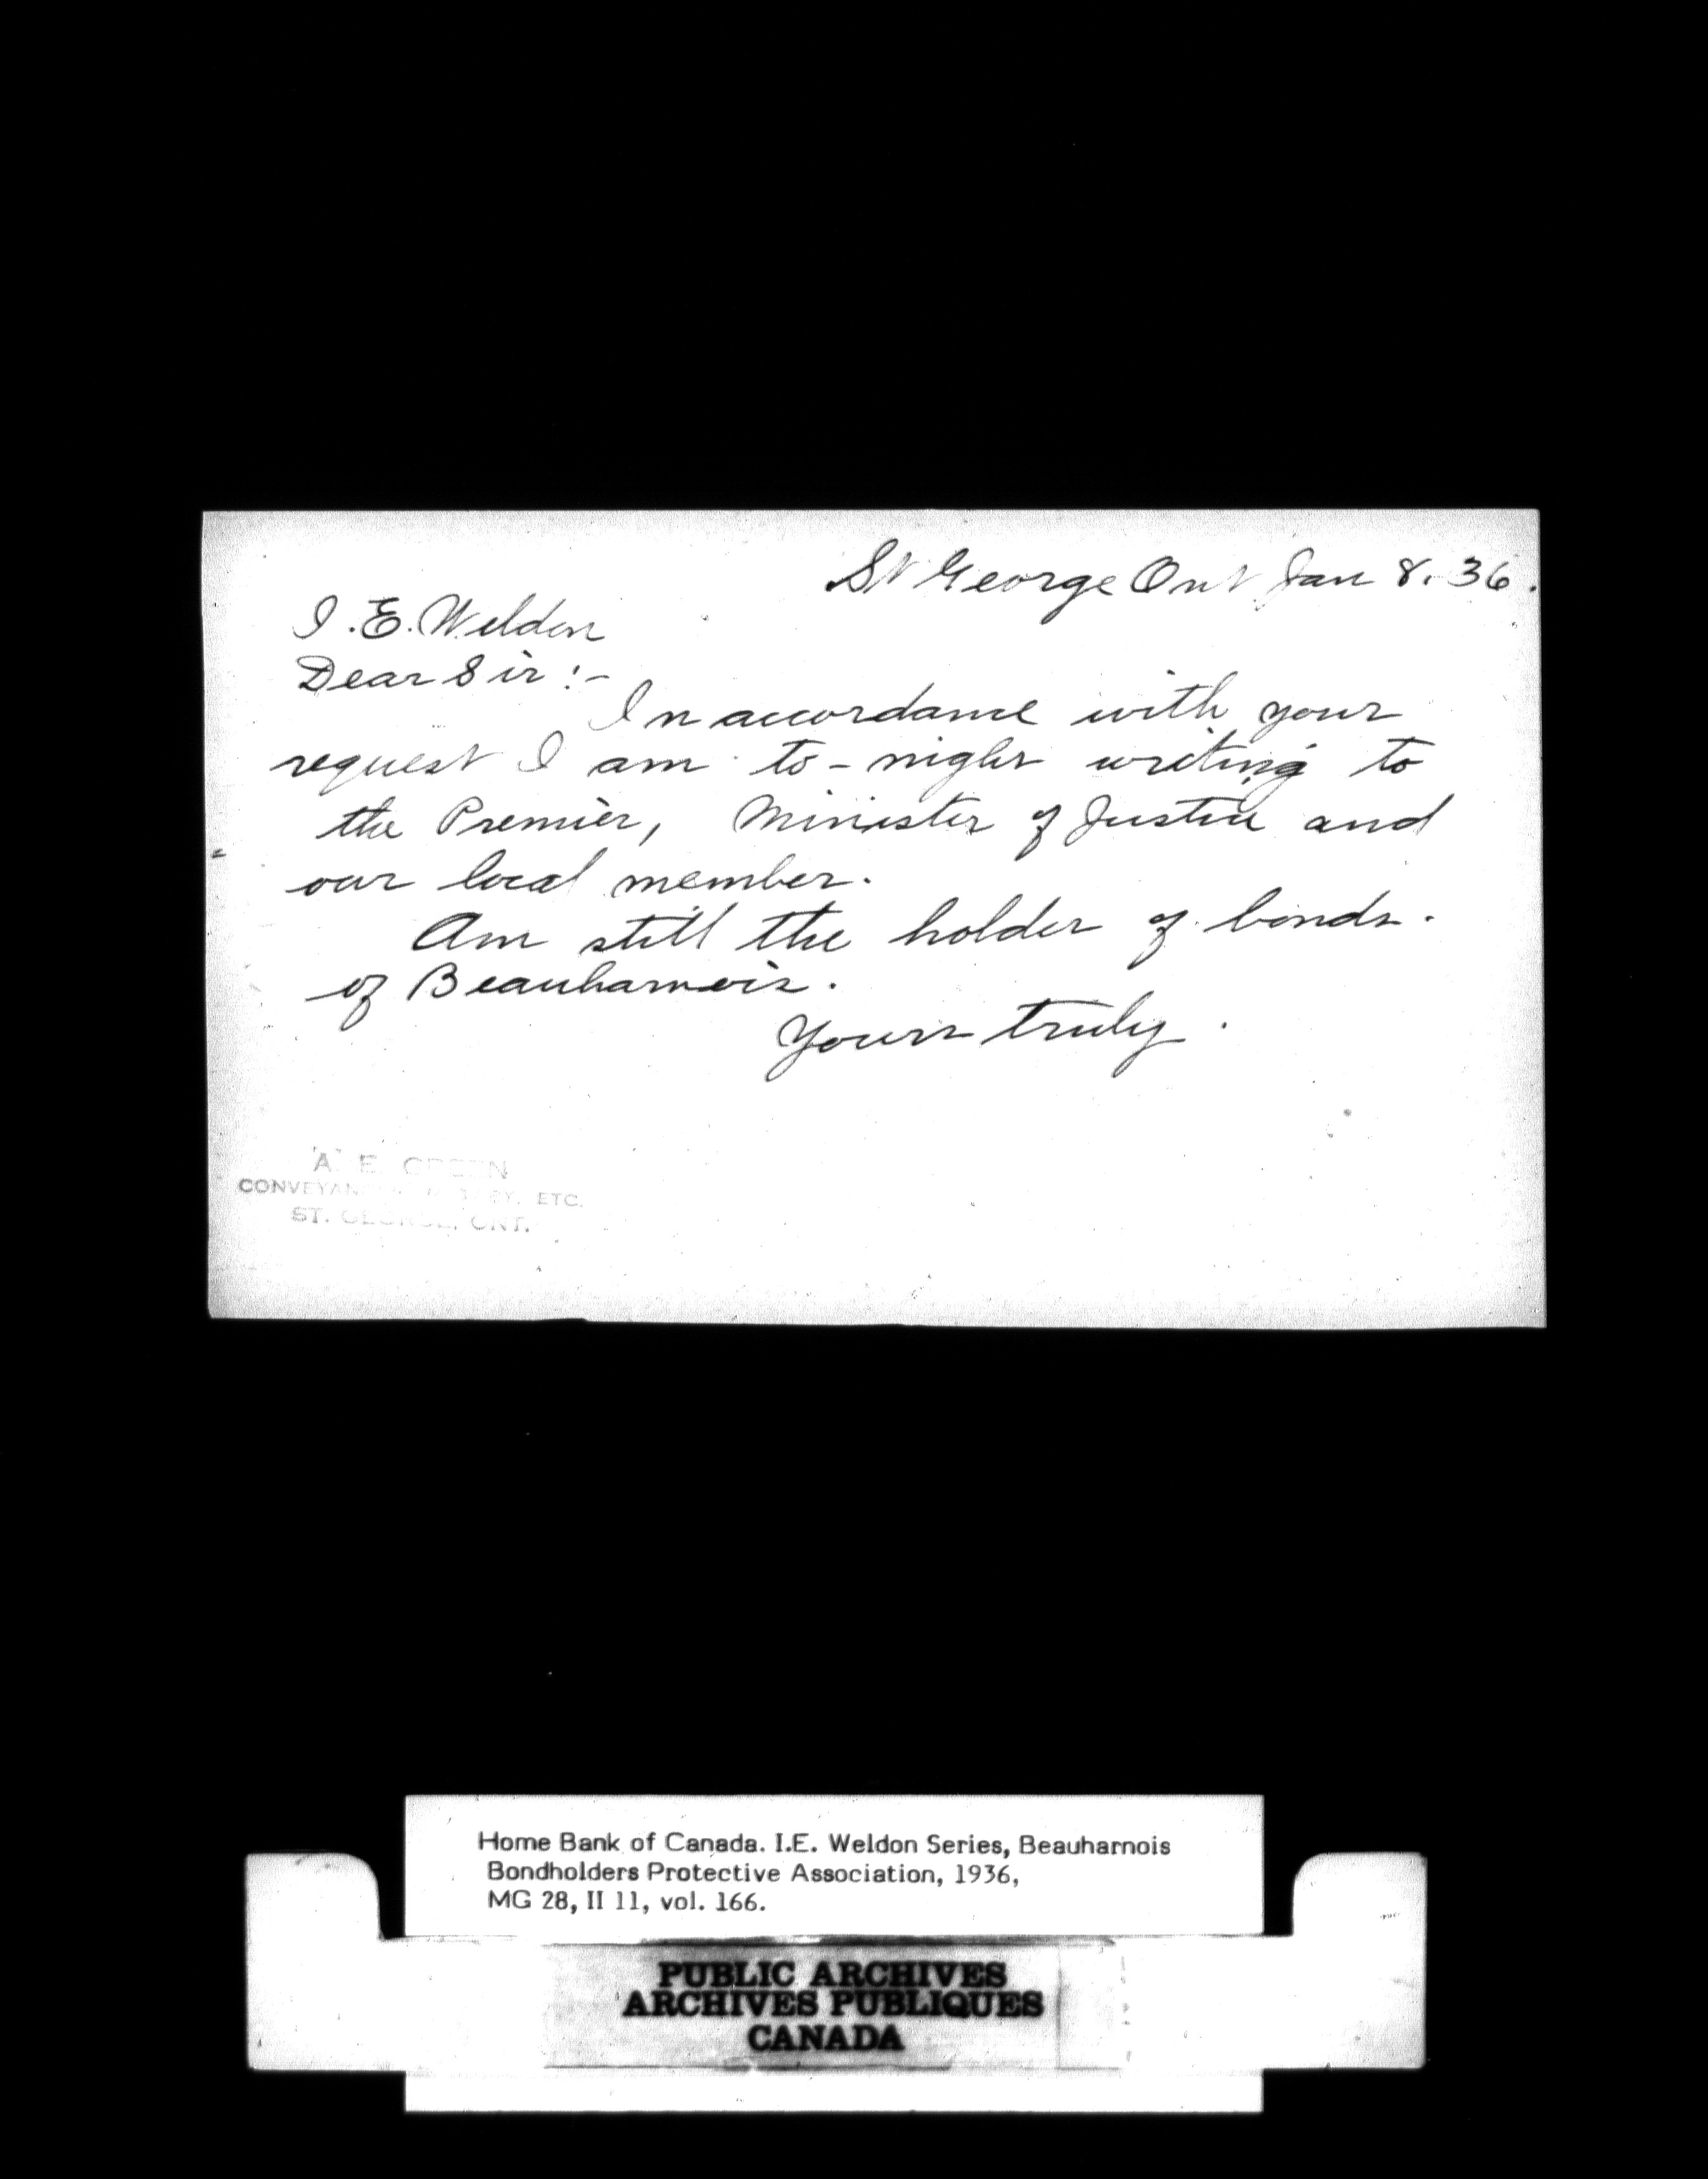 St George Ont Jan 8. 36.
I. E. Weldon
Dear Sir :-
In accordance with your
request I am to-night writing to
the Premier, Minister of Justice and
our local member.
Am still the holder of bonds.
of Beauharnois.
Yours truly.
A. E. GREEN
CONVEYANCER, NOTARY, ETC.
ST. GEORGE, ONT.
Home Bank of Canada. I.E. Weldon Series, Beauharnois
Bondholders Protective Association, 1936,
MG 28, II 11, vol. 166.
PUBLIC ARCHIVES
ARCHIVES PUBLIQUES
CANADA